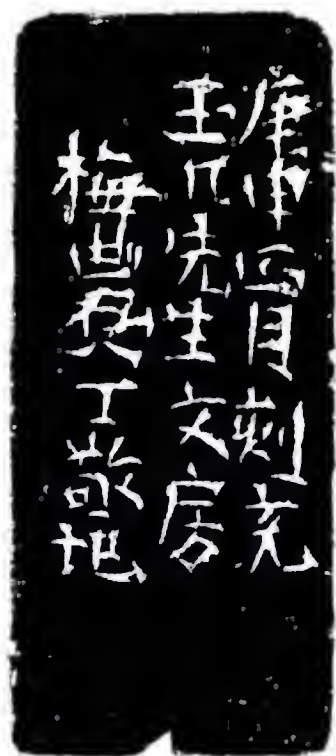 庚申四月刻充
玉几先生文房
梅農丁敬記